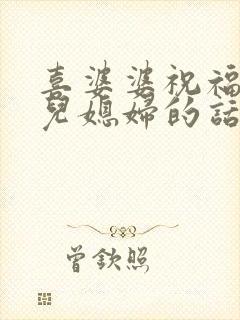 喜婆婆祝福
兒媳婦的話
曾欽照